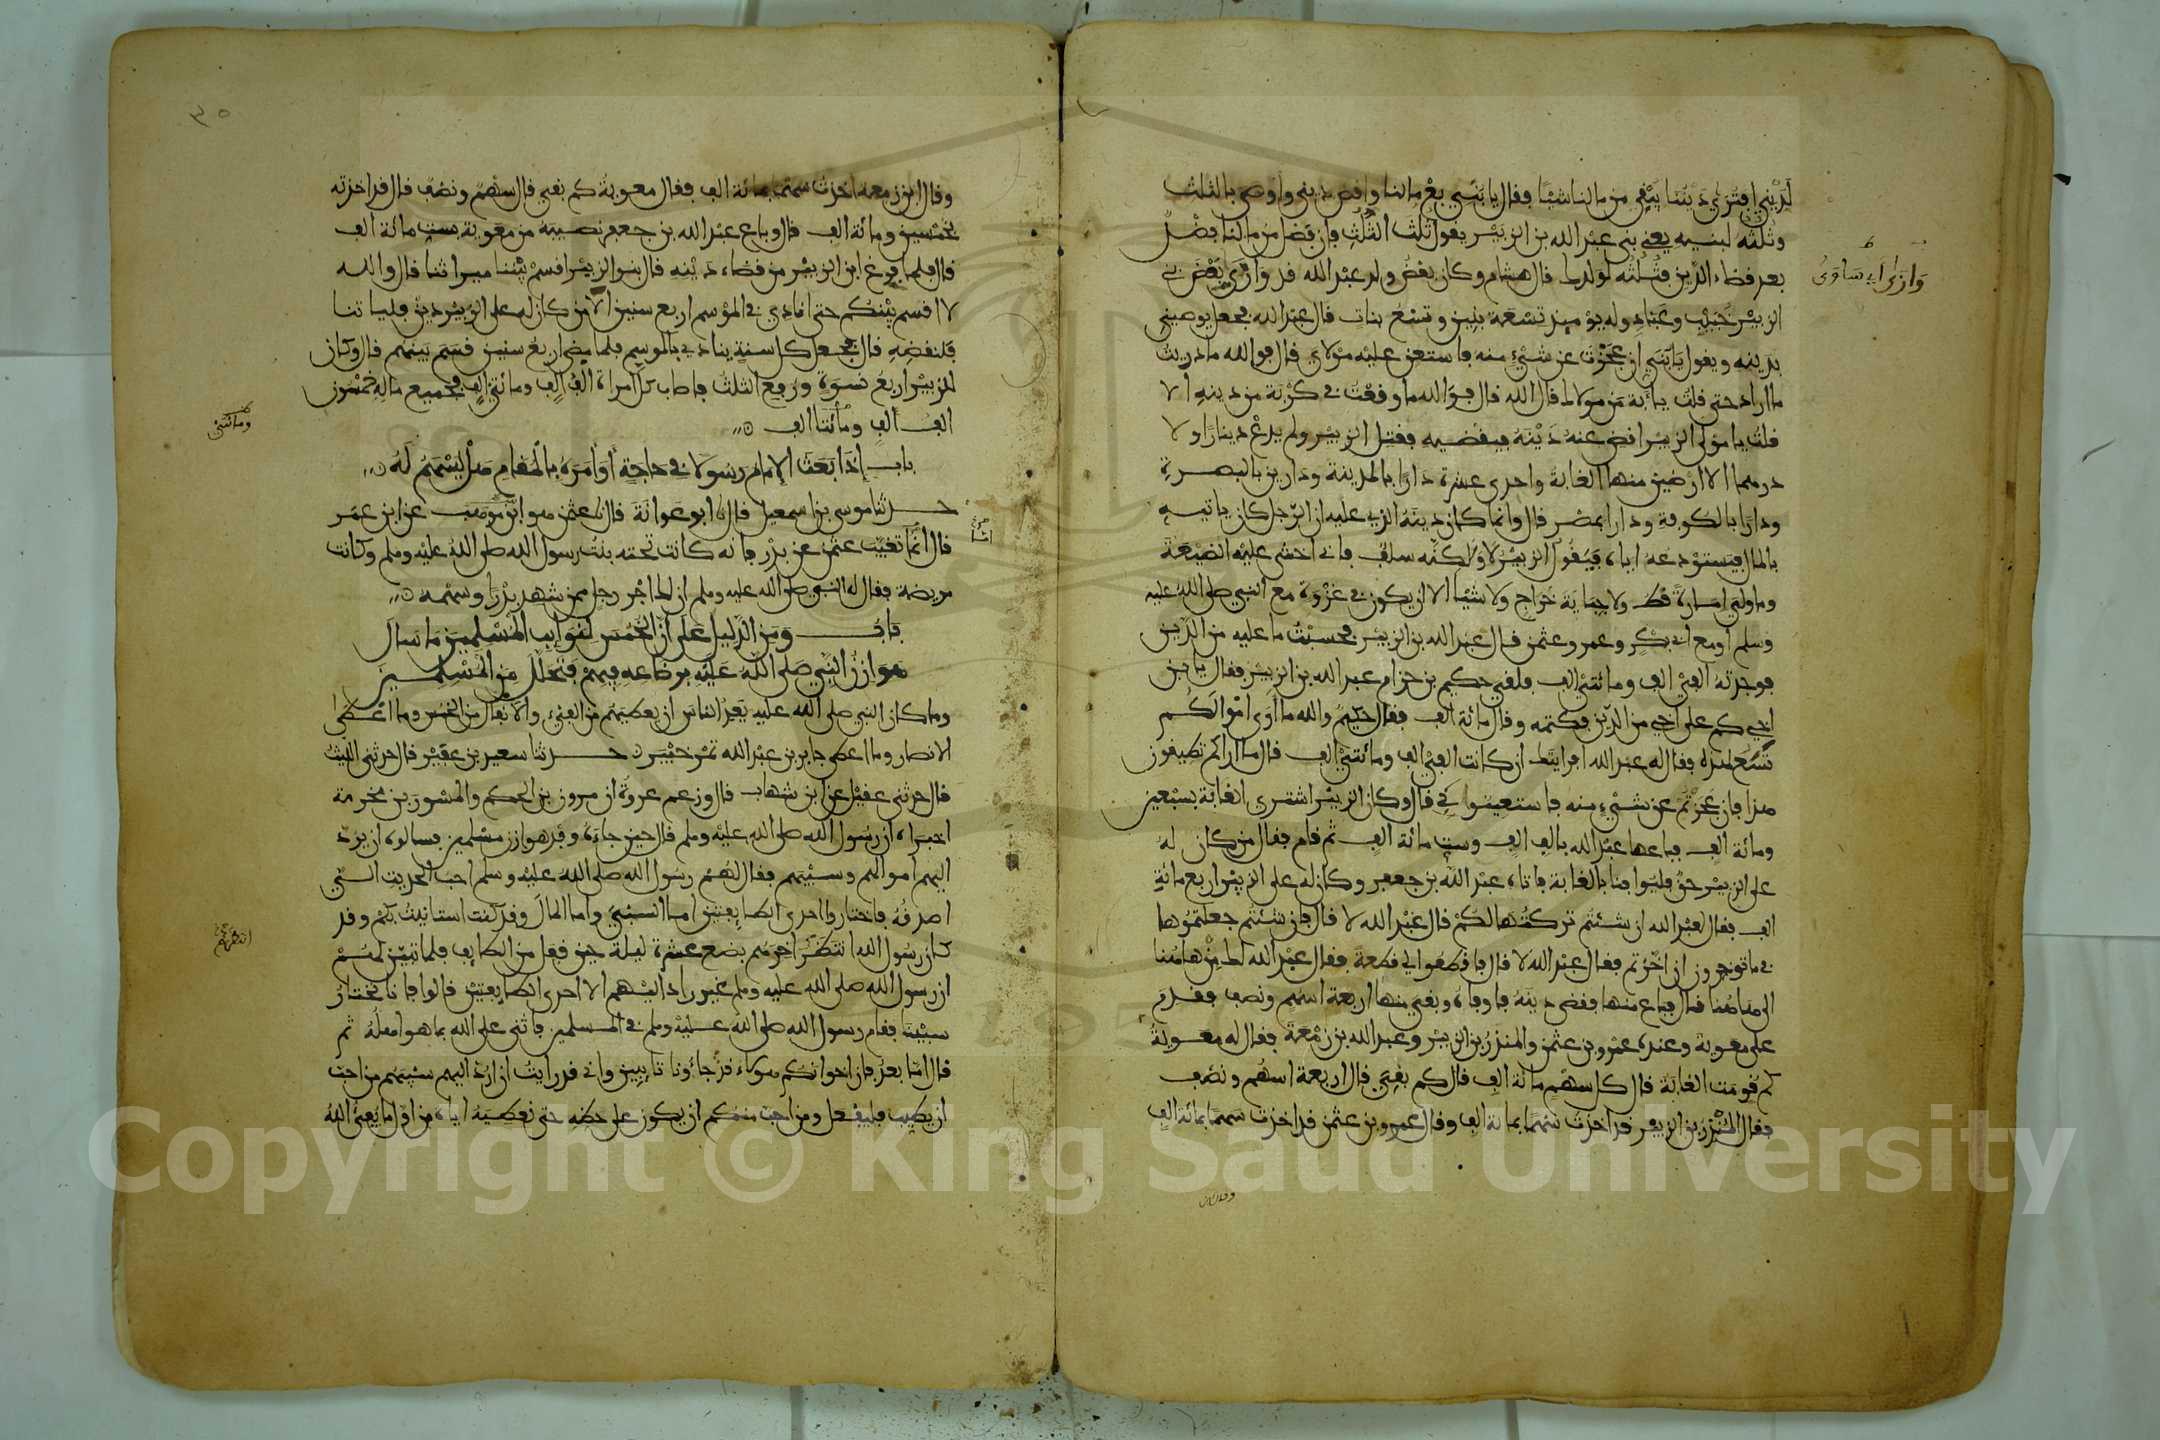 لديني افترى ديننا يبقي من مالنا شيئا فقال يا بني بع مالنا واقض ديني واوصى بالثلث
وثلثه لبنيه يعني بني عبد الله بن الزبير يقول ثلث الثلث فإن فضل من مالنا فضل
بعد قضاء الدين فثلثه لولدك قال هشام وكان بعض ولد عبد الله قد وازى بعض بني
الزبير خبيب وعباد وله يومئذ تسعة بنين وتسع بنات قال عبد الله فجعل يوصيني
بدينه ويقول يا بني إن عجزت عن شيء منه فاستعن عليه مولاي قال فوالله ما دريت
ما اراد حتى قلت يا أبة من مولاك قال الله قال فوالله ما وقعت في كربة من دينه الا
قلت يا مولى الزبير اقض عنه دينه فيقضيه فقتل الزبير ولم يدع دينارا ولا
درهما الا ارضين منها الغابة واحدى عشرة دارا بالمدينة ودارين بالبصرة
ودارا بالكوفة ودارا بمصر قال وانما كان دينه الذي عليه ان الرجل كان ياتيه
بالمال فيستودعه اياه فيقول الزبير لا ولكنه سلف فاني اخشى عليه الضيعة
وما ولي امارة قط ولا جباية خراج ولا شيئا الا ان يكون في غزوة مع النبي صلى الله عليه
وسلم او مع ابي بكر وعمر وعثمن قال عبد الله بن الزبير فحسبت ما عليه من الدين
فوجدته الفي الف ومائتي الف فلقي حكيم بن حزام عبد الله بن الزبير فقال يا بن
اخي كم على اخي من الدين فكتمه وقال مائة الف فقال حكيم والله ما أرى اموالكم
تسع لهذه فقال له عبد الله افرايتك ان كانت الفي الف ومائتي الف قال ما اراكم تطيقون
هذا فإن عجزتم عن شيء منه فاستعينوا بي قال وكان الزبير اشترى الغابة بسبعين
ومائة الف فباعها عبد الله بالف الف وست مائة الف ثم قام فقال من كان له
على الزبير حق فليوافنا بالغابة فاتاه عبد الله بن جعفر وكان له على الزبير اربع مائة
الف فقال لعبد الله ان شئتم تركتها لكم قال عبد الله لا قال فإن شئتم جعلتموها
فيما توخرون ان اخرتم فقال عبد الله لا قال فاقطعوا لي قطعة فقال عبد الله لك من هاهنا
الى هاهنا قال فباع منها فقضى دينه فاوفاه وبقي منها اربعة اسهم ونصف فقدم
على معوية وعنده عمرو بن عثمن والمنذر بن الزبير وعبد الله بن زمعة فقال له معوية
كم قومت الغابة قال كل سهم مائة الف قال كم بقي قال اربعة اسهم ونصف
فقال المنذر بن الزبير قد اخذت سهما بمائة الف وقال عمرو بن عثمن قد اخذت سهما بمائة الف
٣٥
وقال ابن زمعة اخذت سهما بمائة الف فقال معوية كم بقي قال سهم ونصف قال قد اخذته
بخمسين ومائة الف قال وباع عبد الله بن جعفر نصيبه من معوية بست مائة الف
قال فلما فرغ ابن الزبير من قضاء دينه قال بنو الزبير اقسم بيننا ميراثنا قال والله
لا اقسم بينكم حتى انادي في الموسم اربع سنين الا من كان له على الزبير دين فلياتنا
فلنقضه قال فجعل كل سنة ينادي بالموسم فلما مضى اربع سنين قسم بينهم قال وكان
للزبير اربع نسوة ورفع الثلث فاصاب كل امراة الف الف ومائتي الف فجميع ماله خمسون
الف الف ومائتا الف
وما ئتي
باب إذا بعث الإمام رسولا في حاجة أو أمره بالمقام هل يسهم له
حدثنا موسى بن اسمعيل قال نا ابو عوانة قال نا عثمن هو ابن موهب عن ابن عمر
قال انما تغيب عثمن عن بدر فانه كانت تحته بنت رسول الله صلى الله عليه وسلم وكانت
مريضة فقال له النبي صلى الله عليه وسلم ان لك اجر رجل ممن شهد بدرا وسهمه
باب ومن الدليل على أن الخمس لنوايب المسلمين ما سال
هوازن النبي صلى الله عليه برضاعه فيهم فتحلل من المسلمين
وما كان النبي صلى الله عليه يعد الناس ان يعطيهم من الفيء والانفال من الخمس وما اعطى
الانصار وما اعطى جابر بن عبد الله تمر خيبر حدثنا سعيد بن عفير قال حدثني الليث
قال حدثني عقيل عن ابن شهاب قال وزعم عروة ان مروان بن الحكم والمسور بن مخرمة
اخبراه ان رسول الله صلى الله عليه وسلم قال حين جاءه وفد هوازن مسلمين فسالوه ان يرد
اليهم اموالهم وسبيهم فقال لهم رسول الله صلى الله عليه وسلم احب الحديث الي
اصدقه فاختاروا احدى الطايفتين اما السبي واما المال وقد كنت استانيت بكم وقد
كان رسول الله انتظر اخرهم بضع عشرة ليلة حين قفل من الطايف فلما تبين لهم
ان رسول الله صلى الله عليه وسلم غير راد اليهم الا احدى الطايفتين قالوا فانا نختار
سبينا فقام رسول الله صلى الله عليه وسلم في المسلمين فاثنى على الله بما هو اهله ثم
قال اما بعد فإن اخوانكم هولاء قد جاءونا تايبين واني قد رايت ان ارد اليهم سبيهم من احب
ان يطيب فليفعل ومن احب منكم ان يكون على حظه حتى نعطيه اياه من اول ما يفيء الله
Copyright © King Saud University